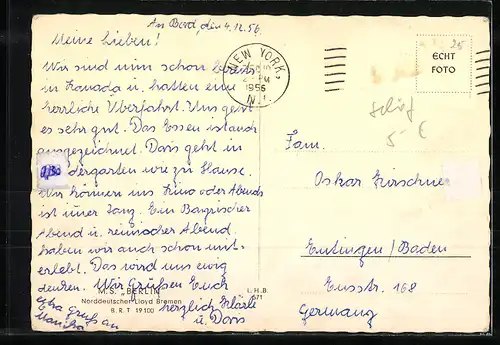 An Bord, den 4.12.56.
Meine Lieben!
Wir sind nun schon bereits
in Kanada u. hatten eine
herrliche Überfahrt. Uns geht
es sehr gut. Das Essen ist auch
ausgezeichnet. Doris geht in
dergarten wie zu Hause.
Wir können ins Kino oder Abends
ist immer Tanz. Ein Bayrischer
Abend u. reinischer Abend
haben wir auch schon mit-
erlebt. Das wird uns ewig
denken. Wir Grüßen Euch
herzlich
u. Doris
Extra Gruß an
M.S. „BERLIN"
Norddeutscher Lloyd Bremen
B.R.T 19100
L.H.B.
571
NEW YORK,
PM
1956
N.Y.
ECHT
FOTO
25
5 €
Fam.
Oskar Kirschner
Eutingen/Baden
Ensstr. 168
Germany